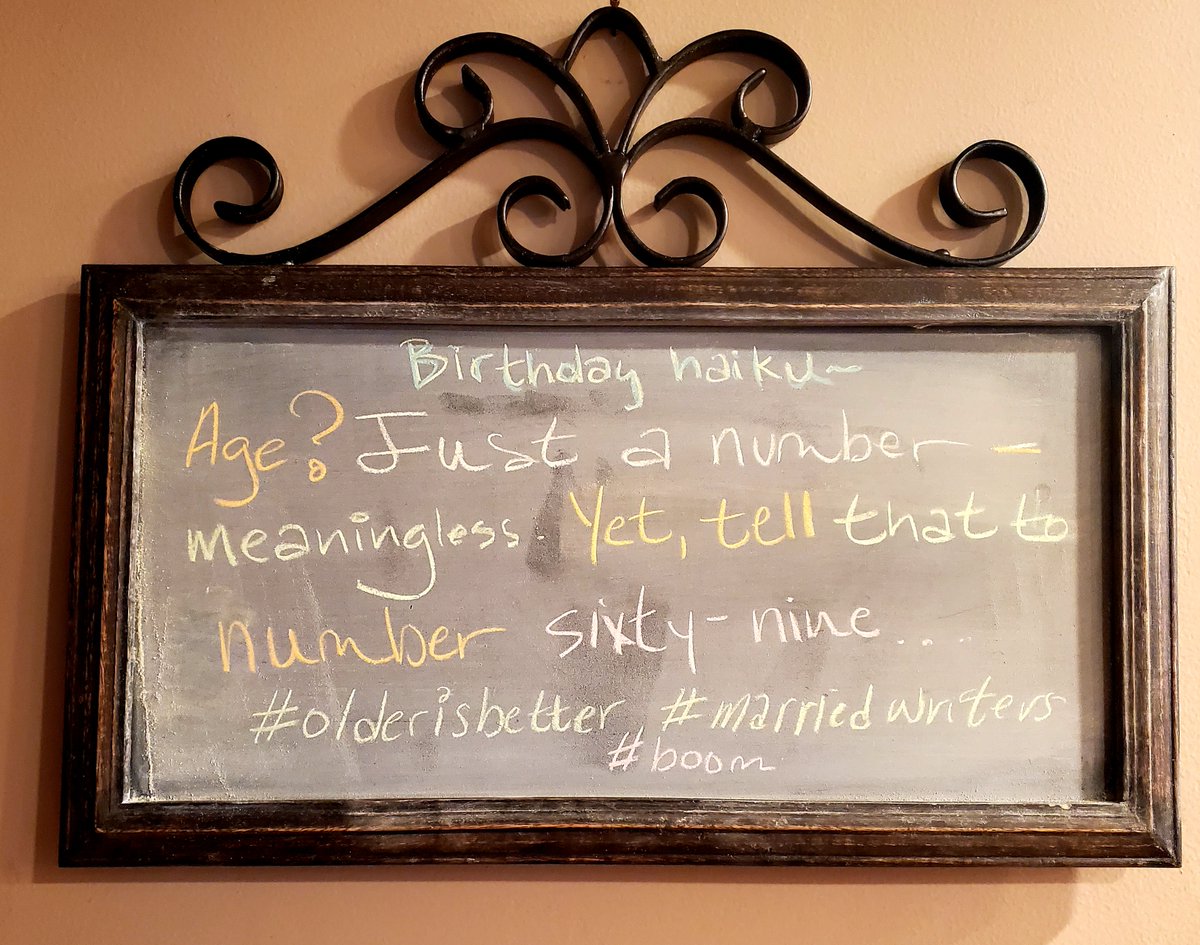 Birthday haiku~
Age? Just a number –
meaningless. Yet, tell that to
number sixty-nine...
#olderisbetter #marriedwriters
#boom